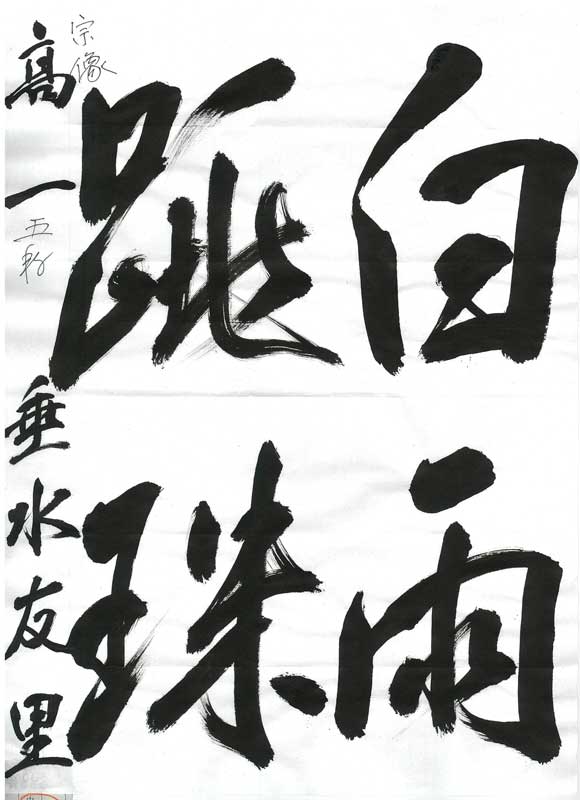 白雨
跳珠
高一 垂水友里
宗像